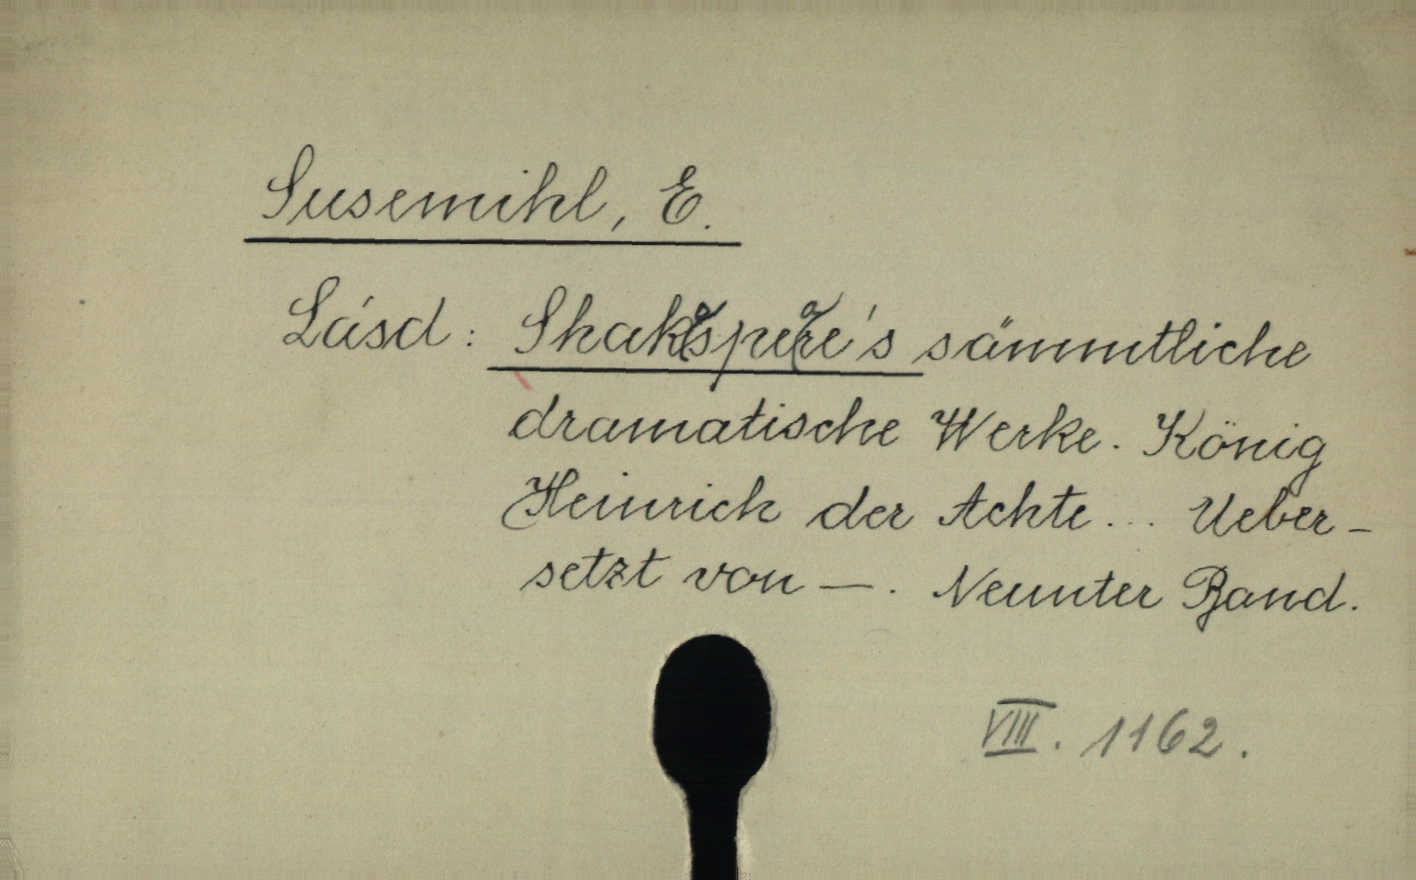 Susemihl, E.
Lásd: Shakespeare's sämmtliche
dramatische Werke. König
Heinrich der Achte... Ueber-
setzt von —. Neunter Band.
VIII. 1162.